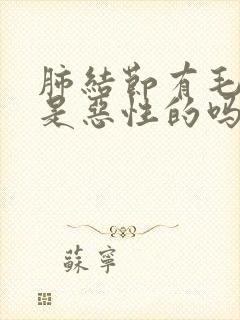 肺結節有毛
是惡性的嗎
蘇寧